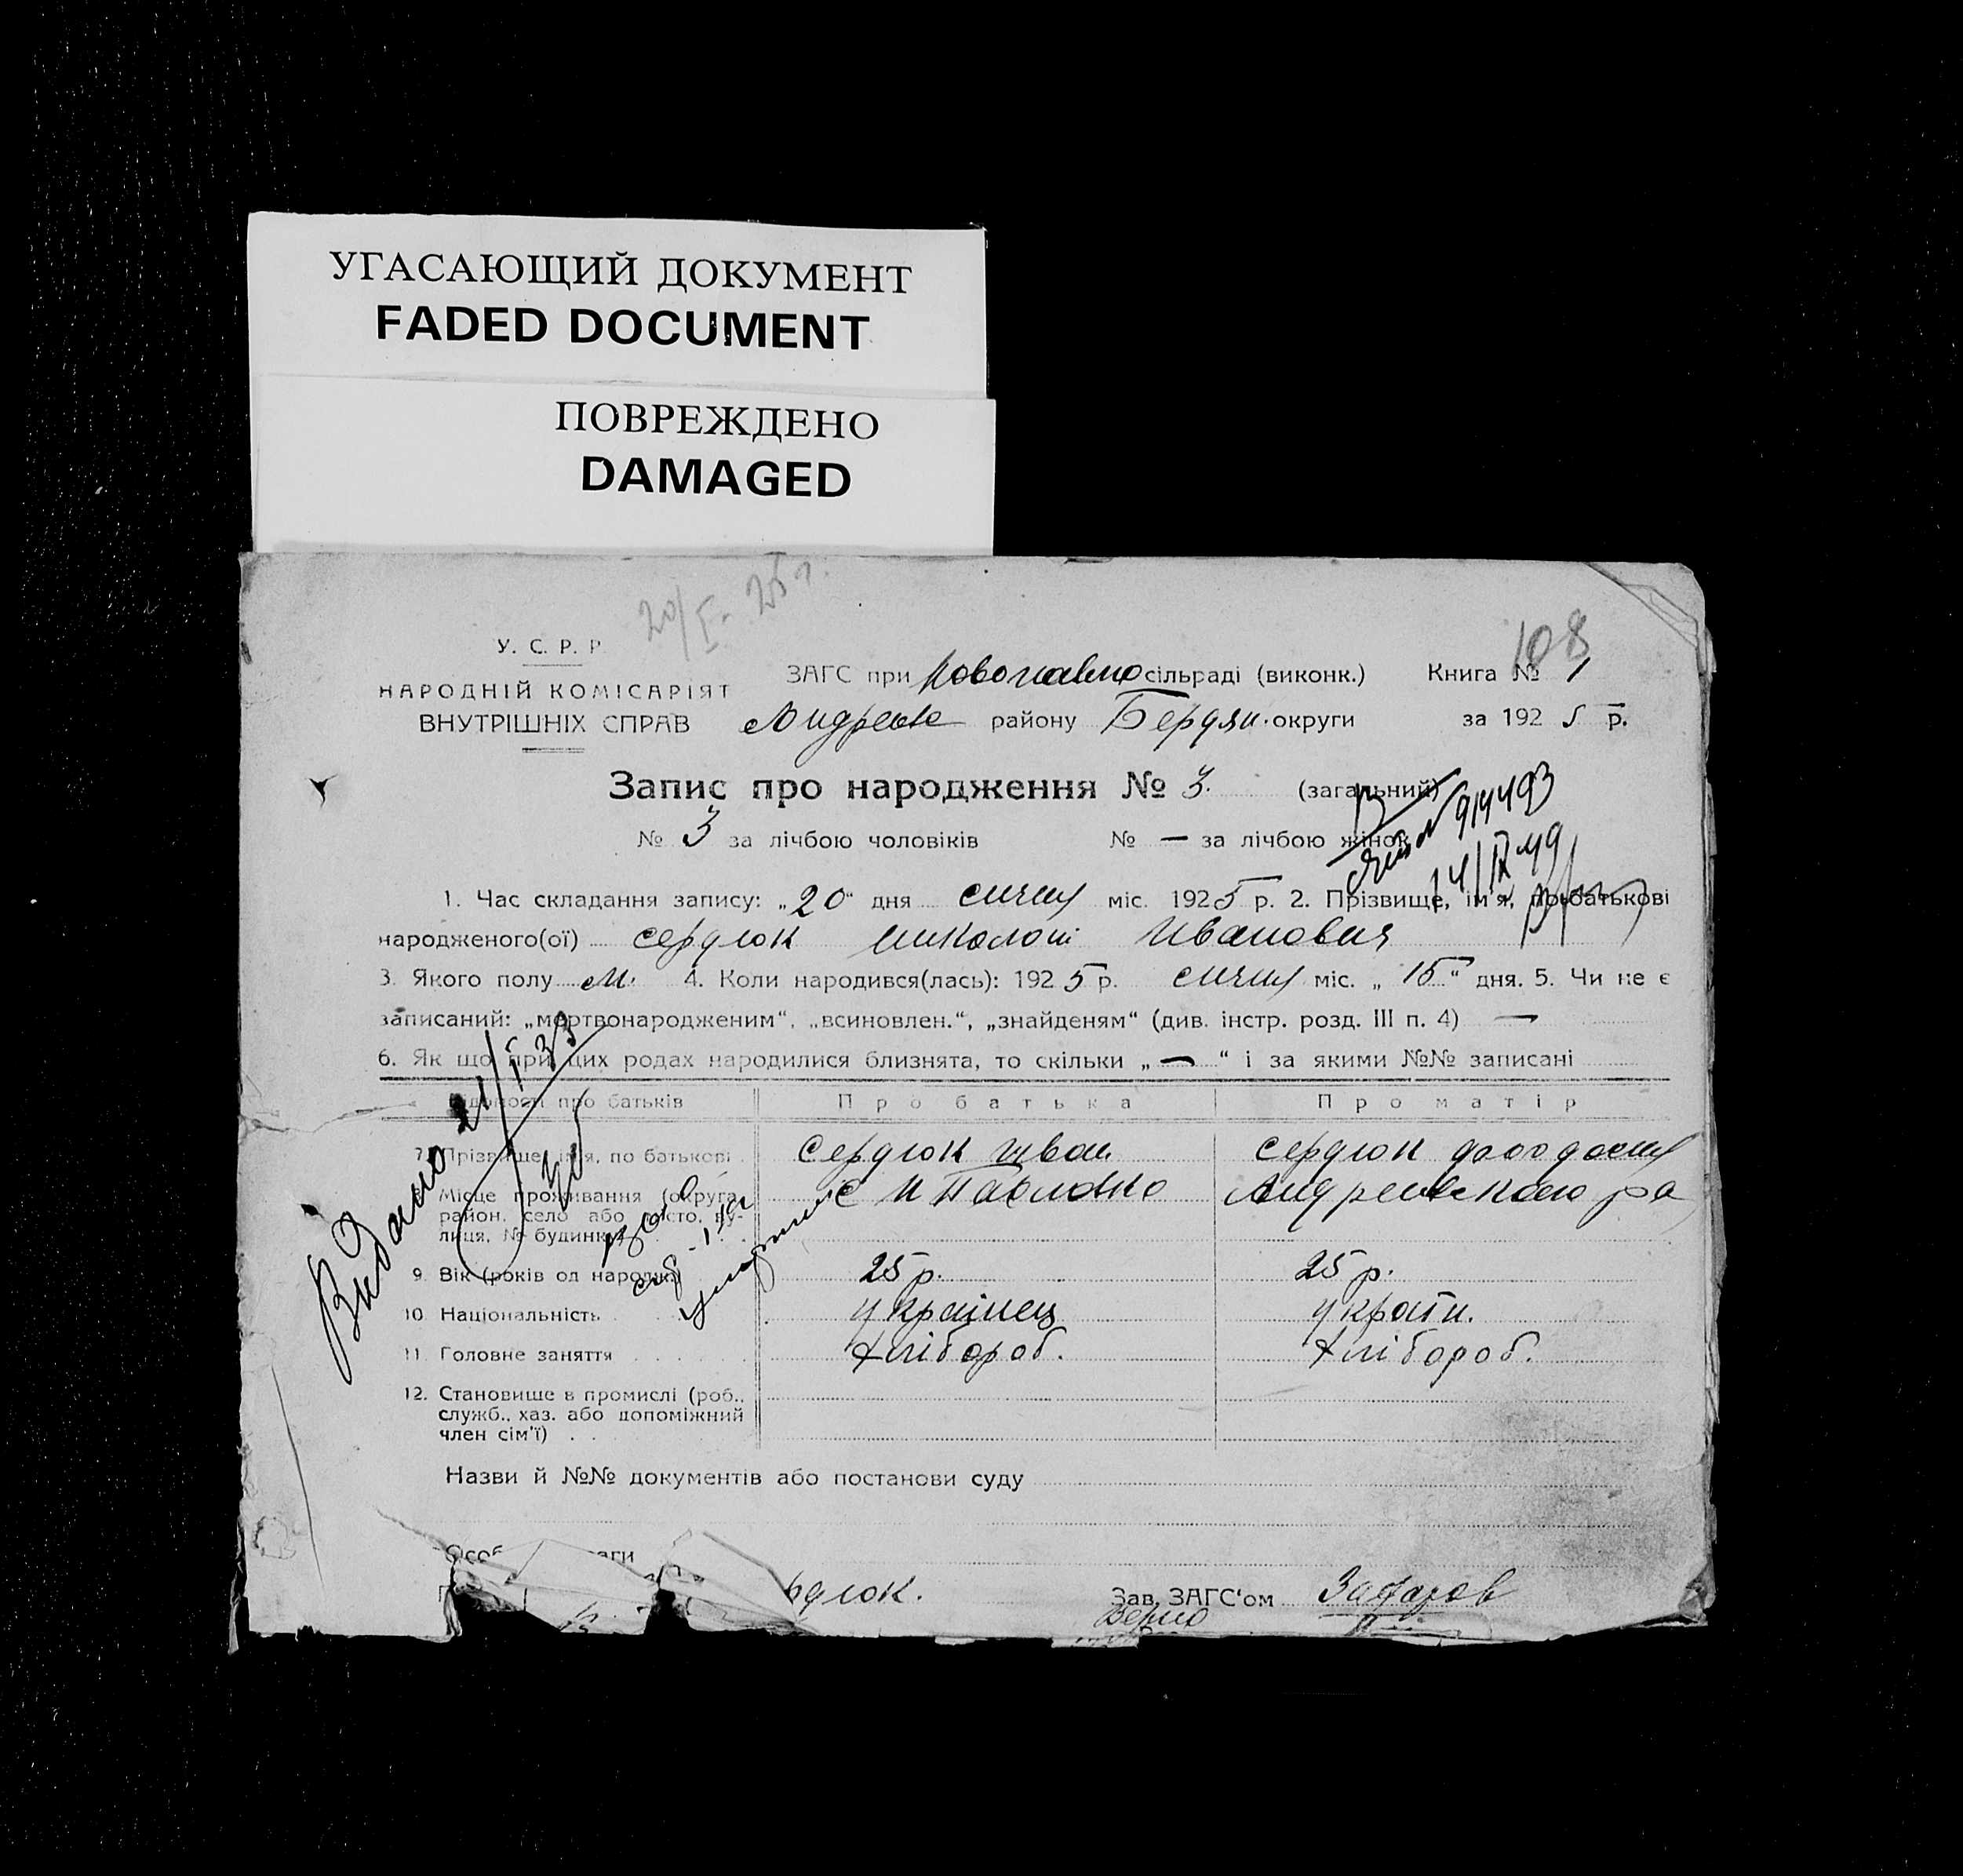 УГАСАЮЩИЙ ДОКУМЕНТ
FADED DOCUMENT
ПОВРЕЖДЕНО
DAMAGED
20/I-25 г.
108
У. С. Р. Р
НАРОДНІЙ КОМІСАРІЯТ
ВНУТРІШНІХ СПРАВ
ЗАГС при Новопавло сільраді (виконк.) Книга № 1
Андреев району Бердян. округи за 1925 р.
Запис про народження № 3. (загальний)
№ 3 за лічбою чоловіків № — за лічбою жінок
№ 914493
14/IX 49
1. Час складання запису: „20" дня січня міс. 1925 р. 2. Прізвище, ім'я, по батькові
народженого(ої) Сердюк Николай Иванович
3. Якого полу м. 4. Коли народився(лась): 1925 р. січня міс. „15" дня. 5. Чи не є
записаний: „мертвонародженим", „всиновлен.", „знайденям" (див. інстр. розд. III п. 4) —
6. Як що при цих родах народилися близнята, то скільки „—" і за якими №№ записані
Відомості про батьків Про батька Про матір
7. Прізвище, ім'я, по батькові Сердюк Іван Сердюк
Місце проживання (округа, с Н Павловка Андреевского ра
район, село або місто, ву-
лиця, № будинку)
9. Вік (років од народж.) 25 р. 25 р.
10. Національність українец україн.
11. Головне заняття Хлібороб. Хлібороб.
12. Становище в промислі (роб.,
служб., хаз. або допоміжний
член сім'ї)
Видано 21/I 33
Назви й №№ документів або постанови суду
Особ аги
рдюк. Зав. ЗАГС'ом Захаров
Верно